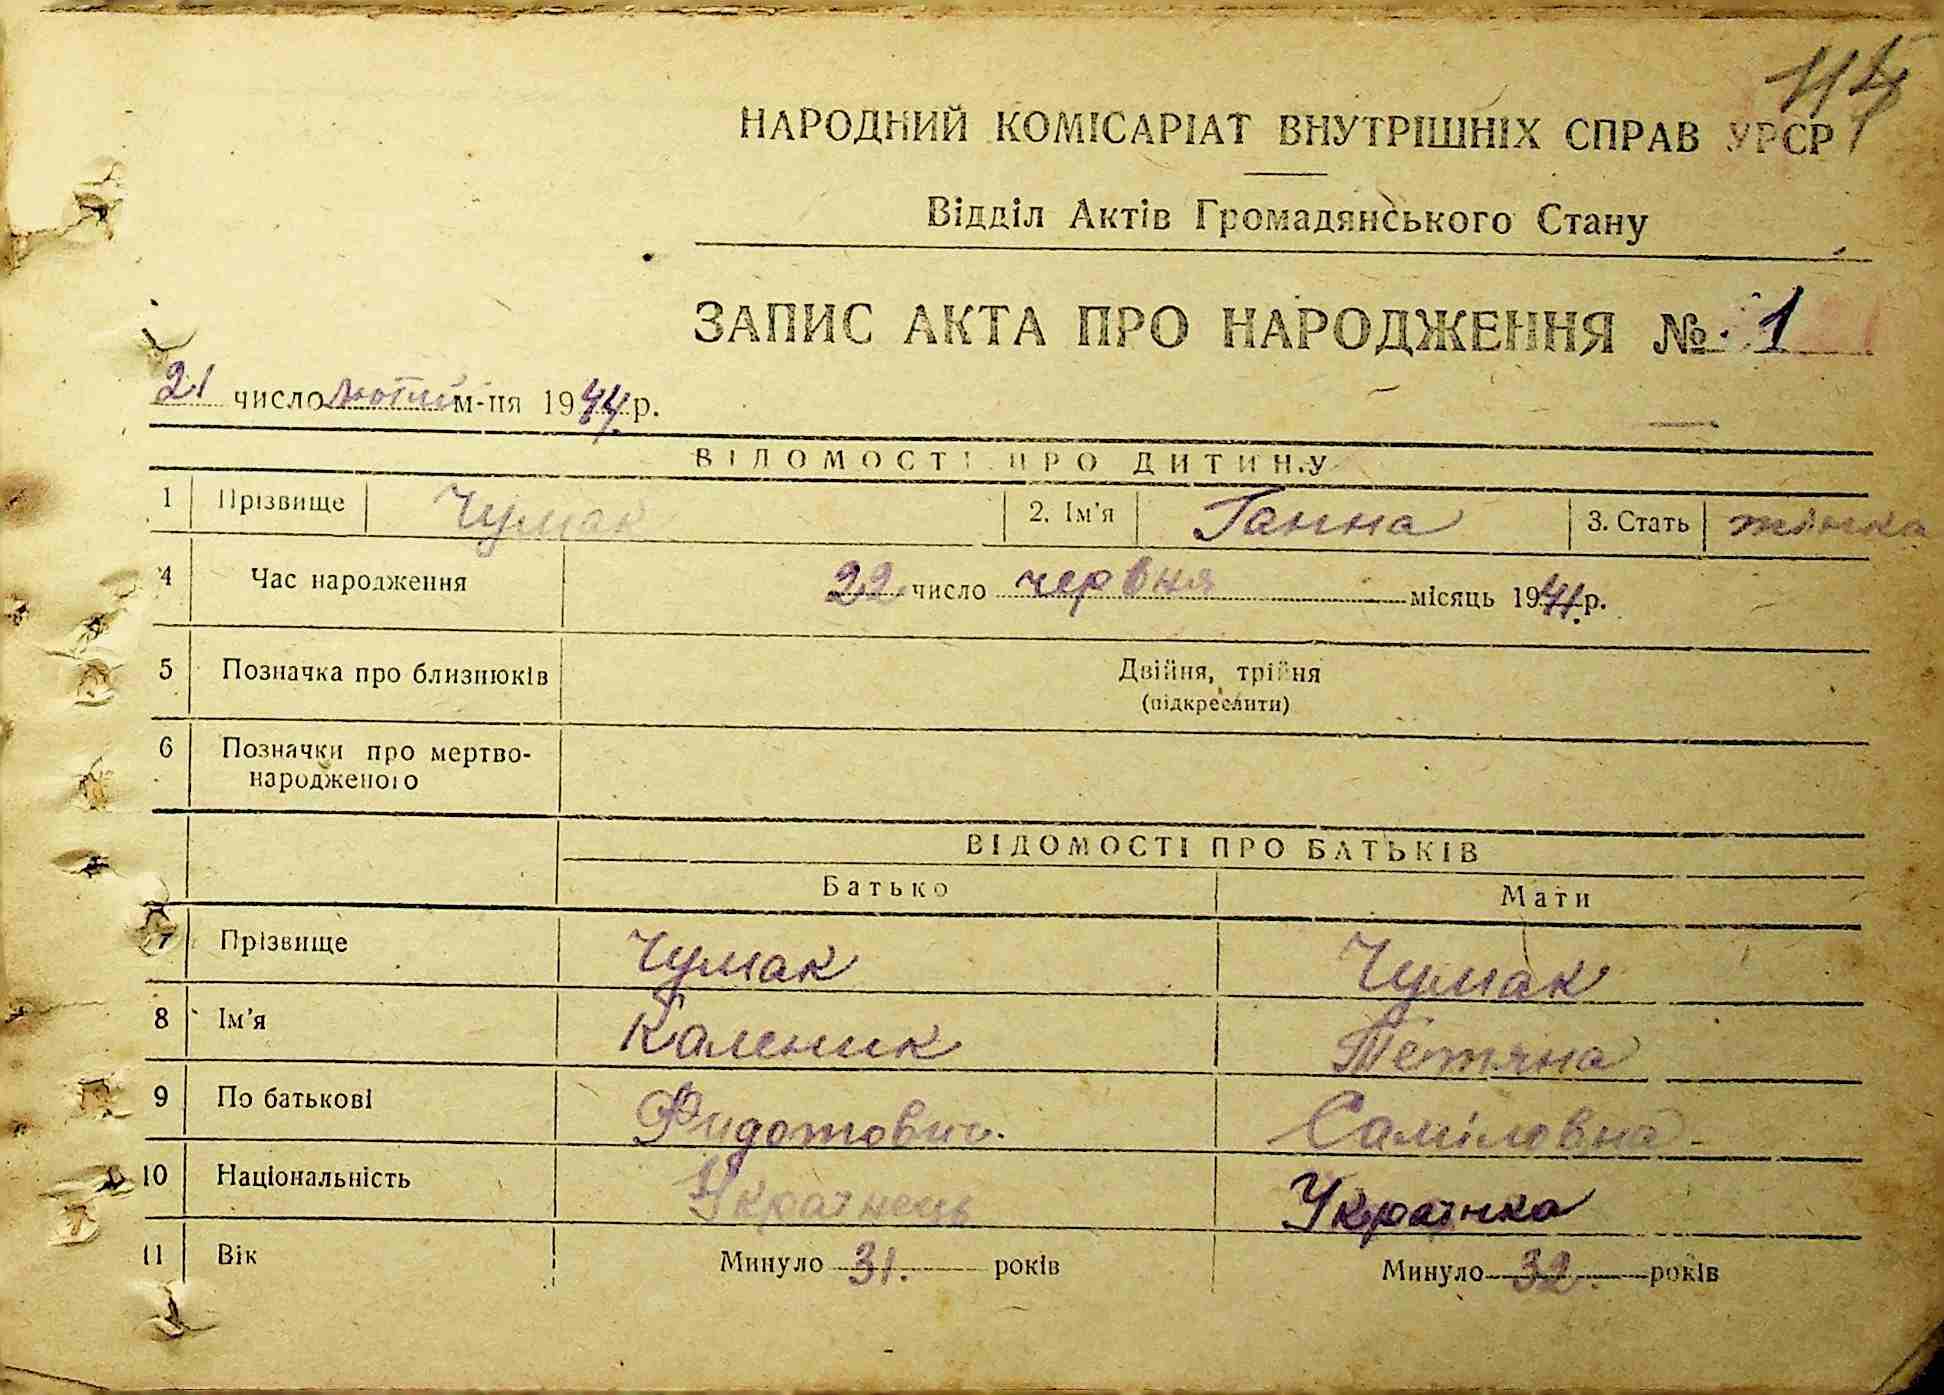 114
НАРОДНИЙ КОМІСАРІАТ ВНУТРІШНІХ СПРАВ УРСР
Відділ Актів Громадянського Стану
ЗАПИС АКТА ПРО НАРОДЖЕННЯ № 1
21 число лютий м-ця 1944 р.
ВІДОМОСТІ ПРО ДИТИНУ
1 Прізвище Чумак 2. Ім'я Ганна 3. Стать жінка
4 Час народження 22 число червня місяць 1941 р.
5 Позначка про близнюків Двійня, трійня
(підкреслити)
6 Позначки про мертво-
народженого
ВІДОМОСТІ ПРО БАТЬКІВ
Батько Мати
7 Прізвище Чумак Чумак
8 Ім'я Каленик Тетяна
9 По батькові Фидотович Самiловна
10 Національність Українець Українка
11 Вік Минуло 31. років Минуло 32. років